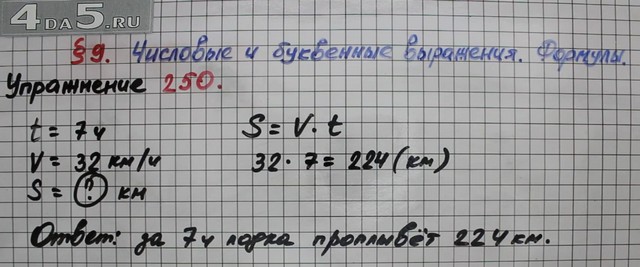 4DA5.RU
§9. Числовые и буквенные выражения. Формулы.
Упражнение 250.
t = 7ч S = V · t
V = 32 км/ч 32 · 7 = 224 (км)
S = ? км
Ответ: за 7ч лодка проплывёт 224 км.